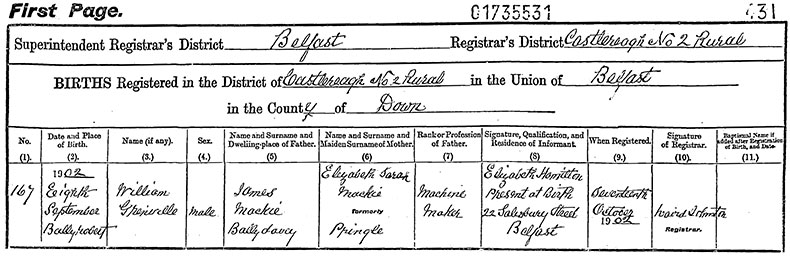 First Page. 01735531 431
Superintendent Registrar's District Belfast Registrar's District Castlereagh No 2 Rural
BIRTHS Registered in the District of Castlereagh No 2 Rural in the Union of Belfast
in the County of Down
No. Date and Place of Birth. Name (if any). Sex. Name and Surname and Dwelling-place of Father. Name and Surname and Maiden Surname of Mother. Rank or Profession of Father. Signature, Qualification, and Residence of Informant. When Registered. Signature of Registrar. Baptismal Name if added after Registration of Birth, and Date.
(1). (2). (3.) (4.) (5) (6) (7) (8) (9.) (10.) (11.)
1902 Elizabeth Sarah Elizabeth Hamilton
167 Eighth William James Mackie Machine Present at Birth Seventeenth
September Grenville male Mackie Formerly Maker 22 Salisbury Street October Johnston
Ballyrobert Pringle Belfast 1902 Registrar.